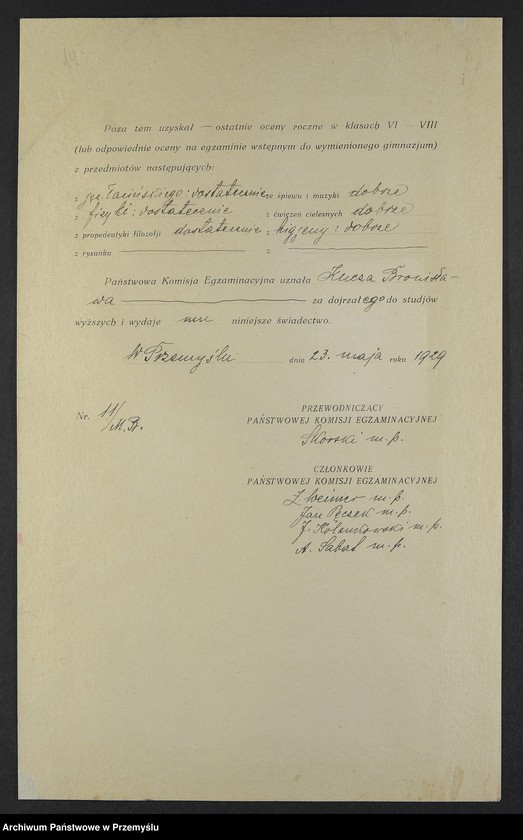 14
Poza tem uzyskał — ostatnie oceny roczne w klasach VI — VIII
(lub odpowiednie oceny na egzaminie wstępnym do wymienionego gimnazjum)
z przedmiotów następujących:
z jęz. łacińskiego: dostatecznie ze śpiewu i muzyki dobrze
z fizyki: dostatecznie z ćwiczeń cielesnych dobrze
z propedeutyki filozofji dostatecznie z higjeny: dobrze
z rysunku z
Państwowa Komisja Egzaminacyjna uznała Kucza Bronisła-
wa za dojrzałego do studjów
wyższych i wydaje mu niniejsze świadectwo.
W Przemyślu dnia 23. maja roku 1929
Nr. 11/M.Pr.
PRZEWODNICZĄCY
PAŃSTWOWEJ KOMISJI EGZAMINACYJNEJ
Skorski m. p.
CZŁONKOWIE
PAŃSTWOWEJ KOMISJI EGZAMINACYJNEJ
Z. Weimer m. p.
Jan Pęcsek m. p.
J. Kolankowski m. p.
A. Sabat m. p.
Archiwum Państwowe w Przemyślu